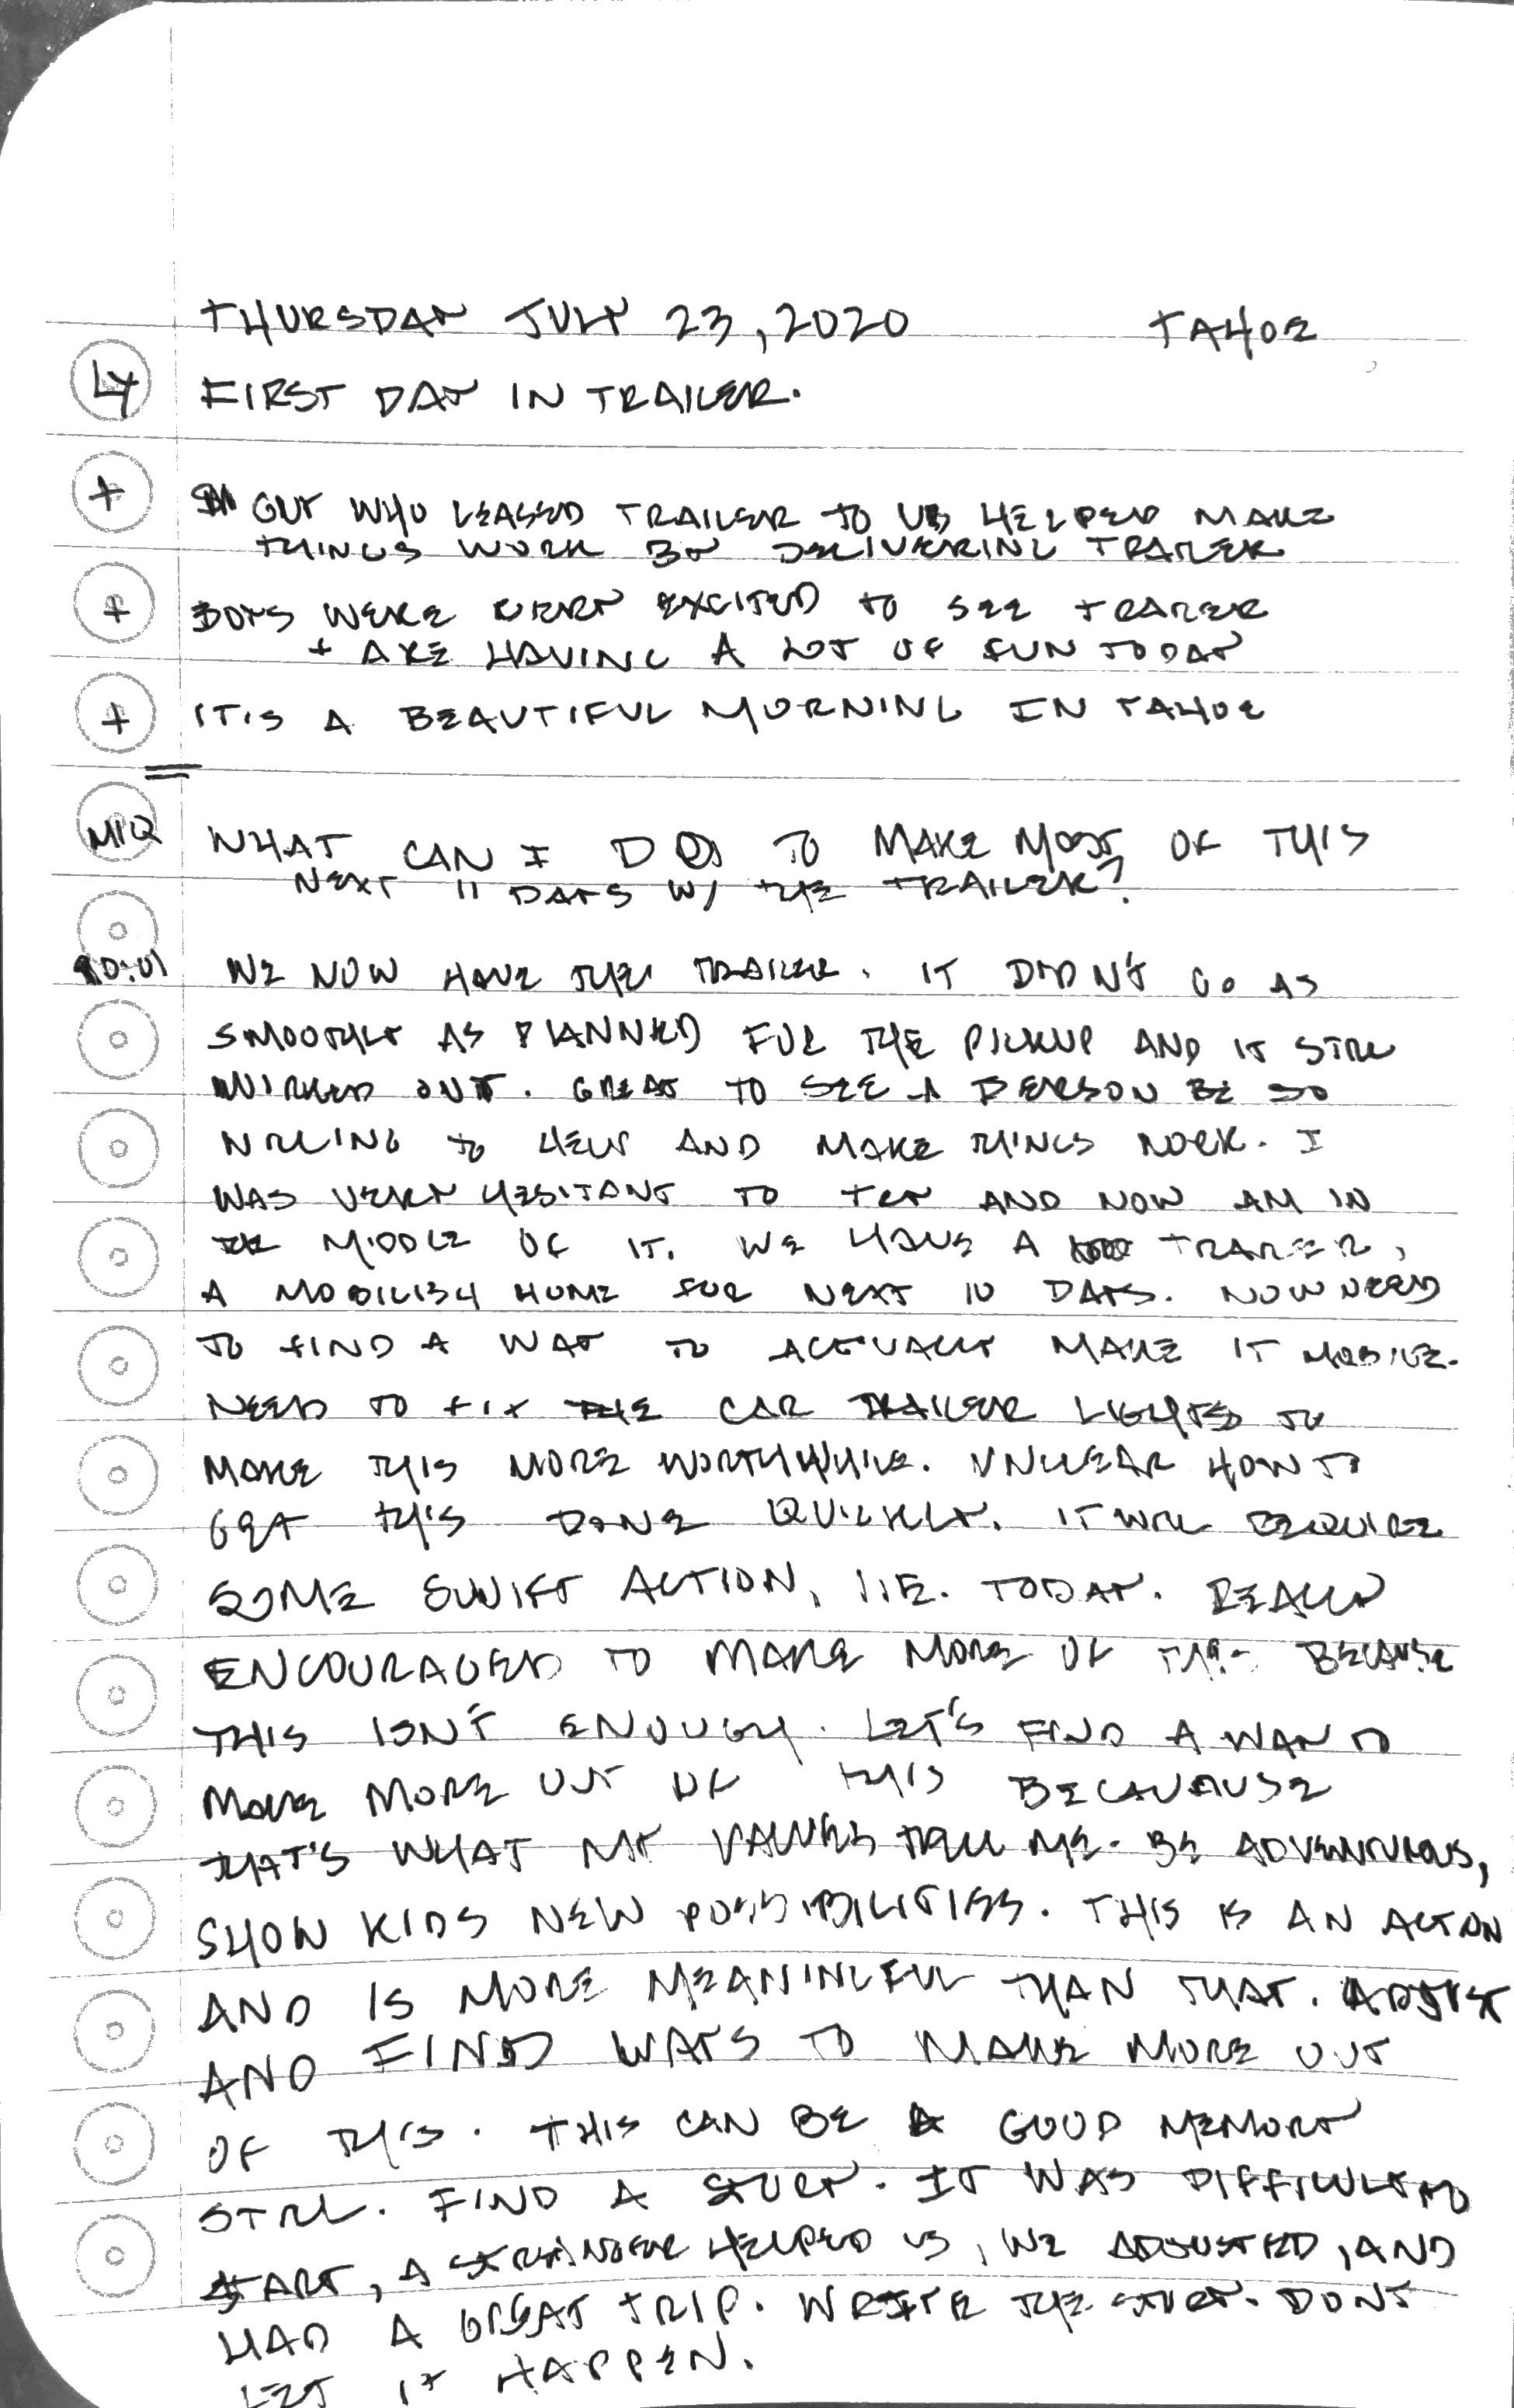 THURSDAY JULY 23, 2020 TAHOE
LY FIRST DAY IN TRAILER.
+ GUY WHO LEASED TRAILER TO US HELPED MAKE
THINGS WORK BY DELIVERING TRAILER
+ BOYS WERE VERY EXCITED TO SEE TRAILER
+ ARE HAVING A LOT OF FUN TODAY
+ IT'S A BEAUTIFUL MORNING IN TAHOE
MIQ WHAT CAN I DO TO MAKE MOST OF THIS
NEXT 11 DAYS W/ THE TRAILER?
10:01 WE NOW HAVE THE TRAILER. IT DIDN'T GO AS
SMOOTHLY AS PLANNED FOR THE PICKUP AND IT STILL
WORKED OUT. GREAT TO SEE A PERSON BE SO
WILLING TO HELP AND MAKE THINGS WORK. I
WAS VERY HESITANT TO TRY AND NOW AM IN
THE MIDDLE OF IT. WE HAVE A TRAILER,
A MOBILISH HOME FOR NEXT 10 DAYS. NOW NEED
TO FIND A WAY TO ACTUALLY MAKE IT MOBILE.
NEED TO FIX THE CAR TRAILER LIGHTS TO
MAKE THIS MORE WORTHWHILE. UNCLEAR HOW TO
GET THIS DONE QUICKLY. IT WILL REQUIRE
SOME SWIFT ACTION, I.E. TODAY. REALLY
ENCOURAGED TO MAKE MORE OF THIS BECAUSE
THIS ISN'T ENOUGH. LET'S FIND A WAY TO
MAKE MORE OUT OF THIS BECAUAUSE
THAT'S WHAT MY VALUES TELL ME. BE ADVENTUROUS,
SHOW KIDS NEW POSSIBILITIES. THIS IS AN ACTION
AND IS MORE MEANINGFUL THAN THAT. ADJUST
AND FIND WAYS TO MAKE MORE OUT
OF THIS. THIS CAN BE A GOOD MEMORY
STILL. FIND A STORY. IT WAS DIFFICULT TO
START, A STRANGER HELPED US, WE ADJUSTED, AND
HAD A GREAT TRIP. WRITE THE STORY. DON'T
LET IT HAPPEN.